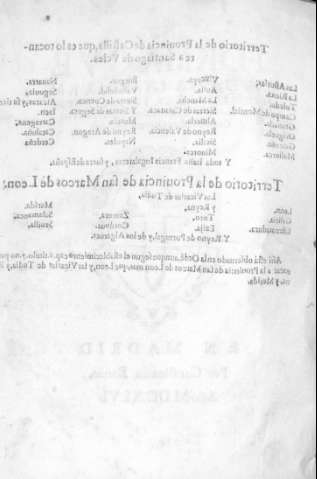 Territorio de la Provincia de Castilla, que es lo tocan-
te a Santiago de Vcles.
Las Asturias, Vizcaya. Burgos. Nauarra.
La Rioxa. Auila. Valladolid. Segouia,
Toledo. La Mancha. Sierra de Cuenca. Alcaraz y su
Campo de Montiel. Sierra de Cazorla. Y tierra de Segura. Iaen.
Granada. Almeria. Murcia. Cartagena;
Origuela. Reyno de Valencia. Reyno de Aragon. Cataluña.
Cerdeña. Sicilia. Napoles. Cerdeña
Mallorca. Menorca.
Y toda Italia Francia Inglaterra, y fuera de España.
Territorio de la Prouincia de san Marcos de Leon;
Las Vicarias de Tudia,
Leon. y Reyna, Merida.
Galicia. Toro. Zamora. Salamanca.
Estremadura. Ezija. Cordoua. Seuilla,
Y Reyno de Portugal, y de los Algarues.
Assi está obseruado en la Ordẽ, aunque segun el establecimiento
toca a la Prouincia de san Marcos de Leon mas, que Leon, y las Vicarias de Tudia, y
na, y Merida.
EN MADRID
Por